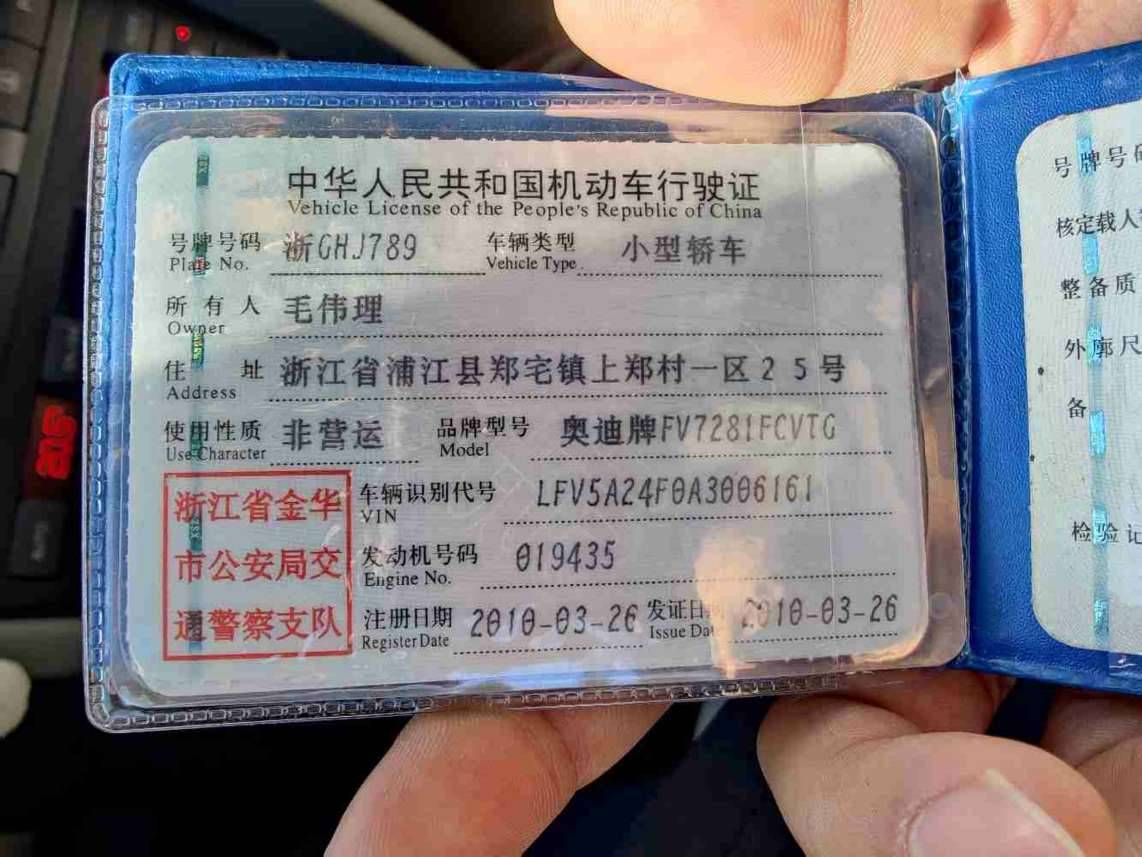 中华人民共和国机动车行驶证
Vehicle License of the People's Republic of China
号牌号码 浙GHJ789 车辆类型 小型轿车
Plate No. Vehicle Type
所有人 毛伟理
Owner
住址 浙江省浦江县郑宅镇上郑村一区25号
Address
使用性质 非营运 品牌型号 奥迪牌FV7281FCVTG
Use Character Model
浙江省金华
市公安局交
通警察支队
车辆识别代号 LFV5A24F0A3006161
VIN
发动机号码 019435
Engine No.
注册日期 2010-03-26 发证日期 2010-03-26
Register Date Issue Date
号牌号码
核定载人
整备质
外廓尺
备
检验记
AUTO